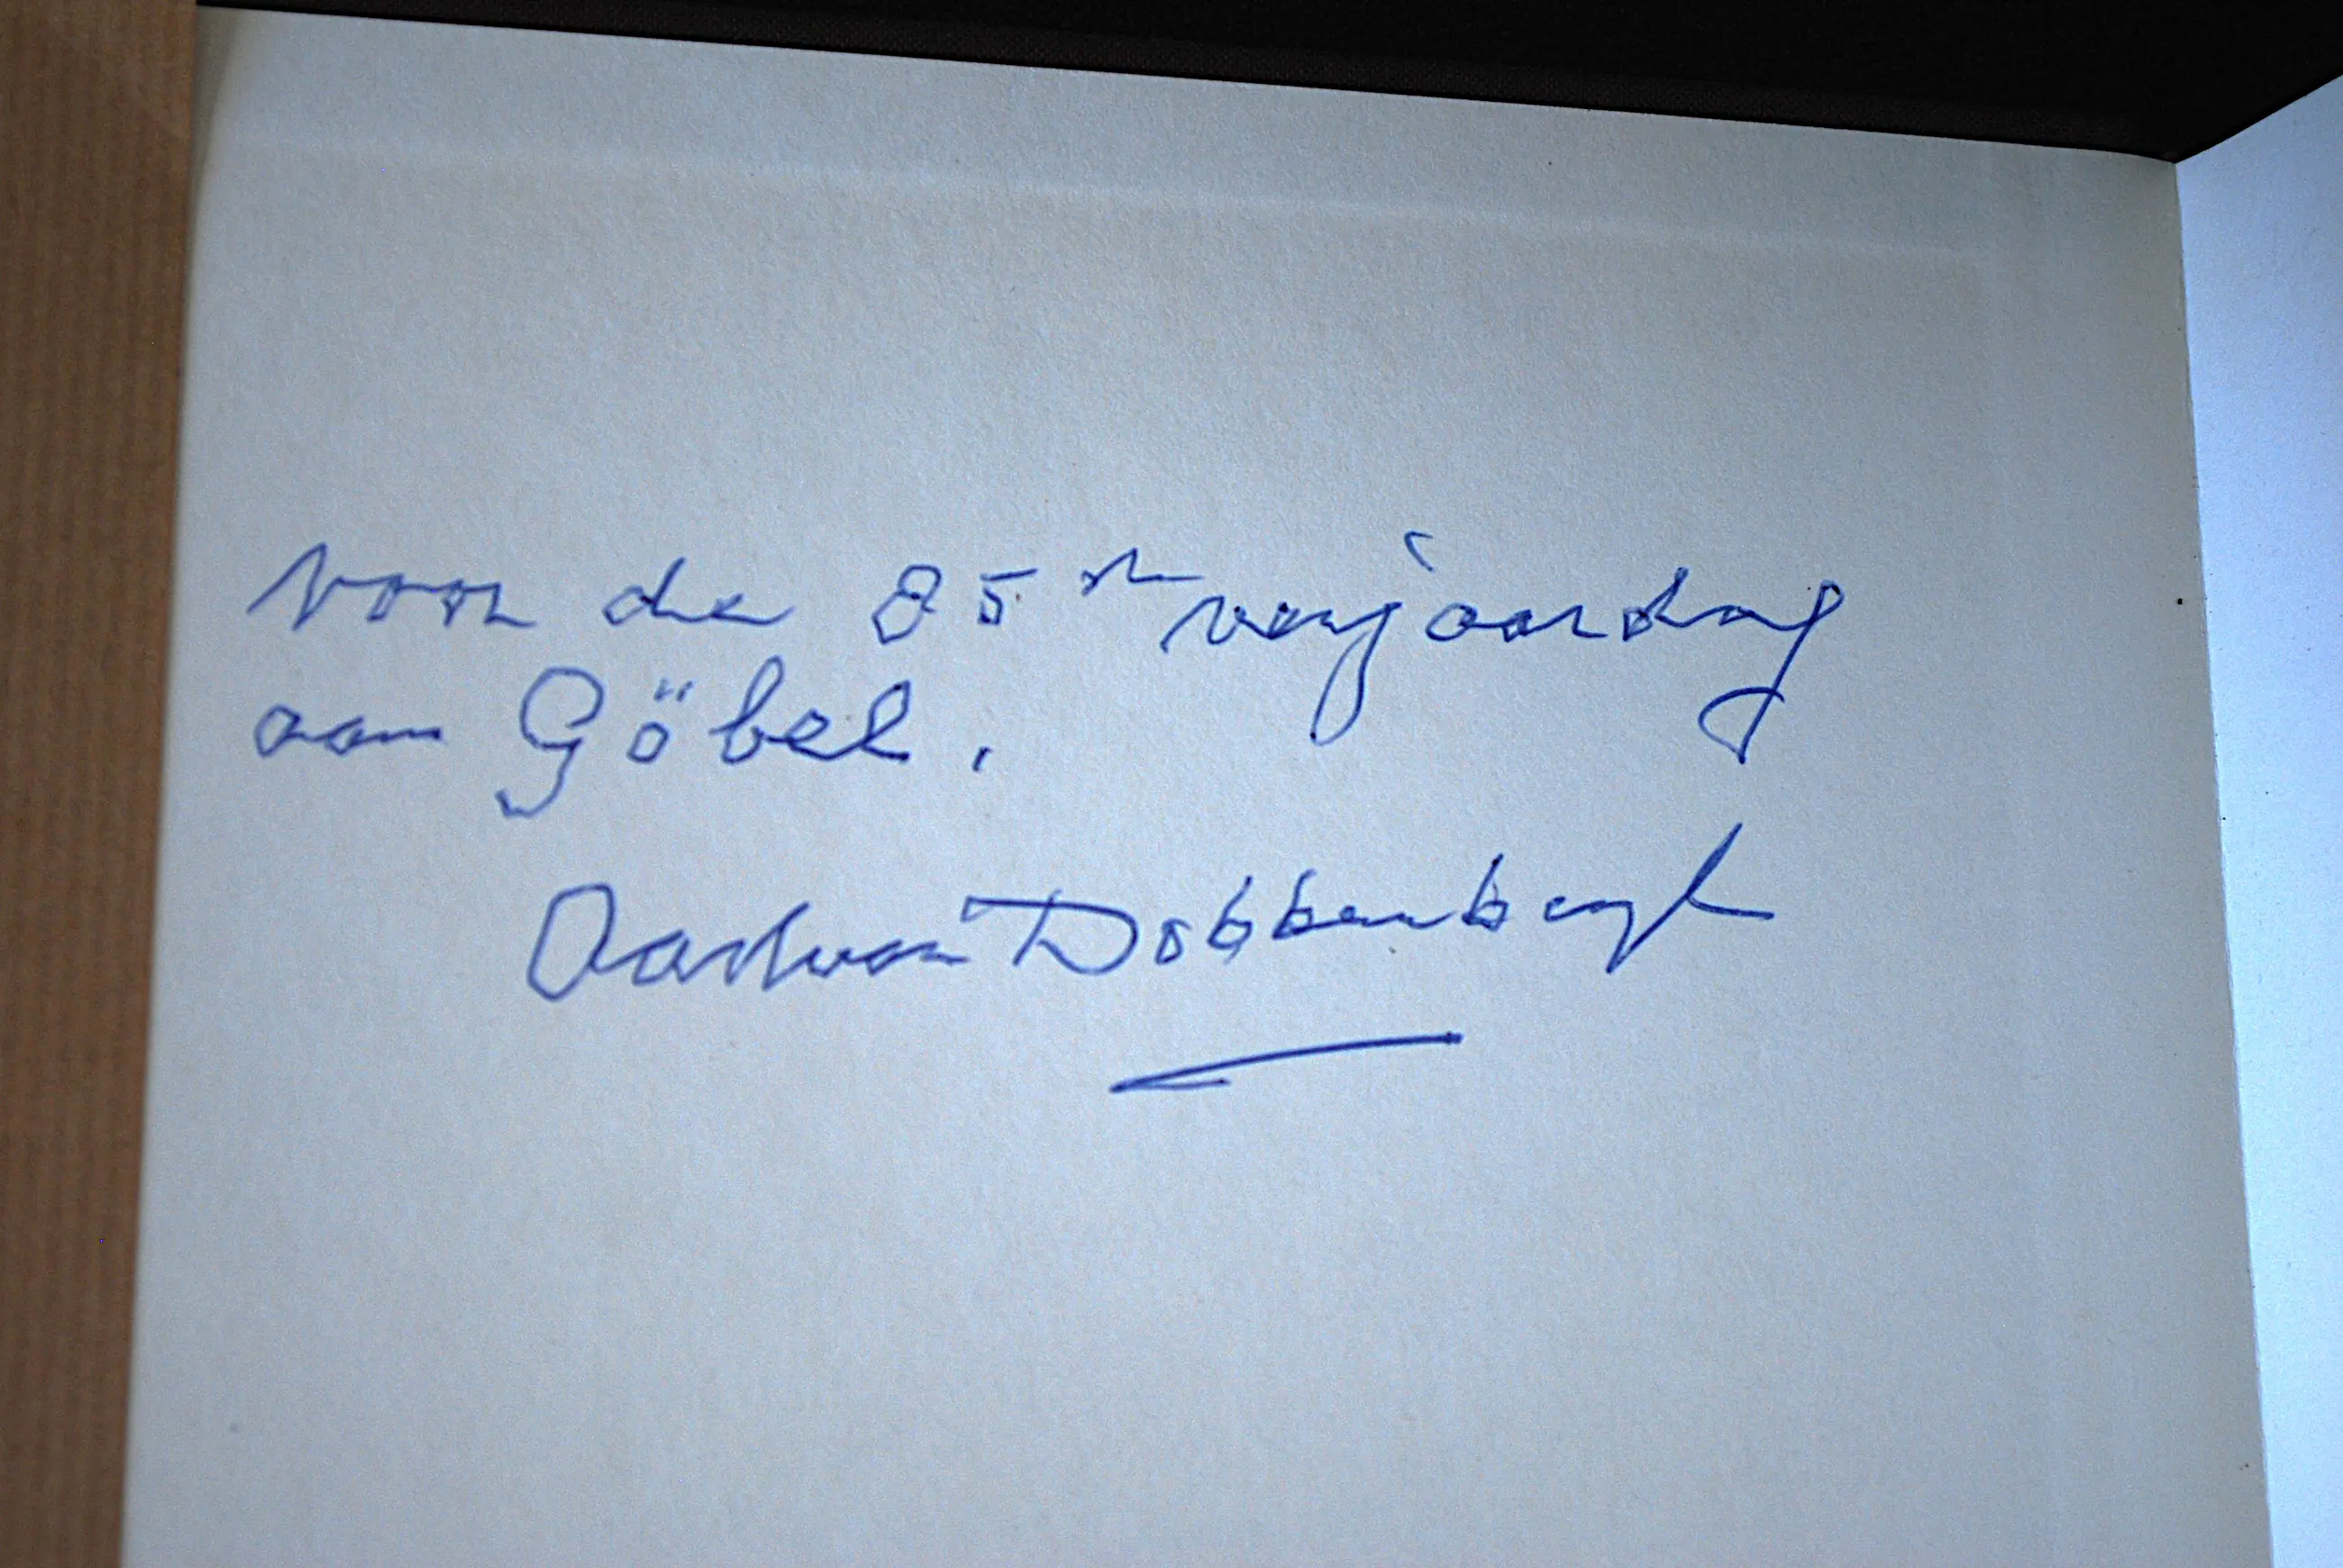 voor de 85ste verjaardag
aan Göbel.
Aart van Dobbenburgh